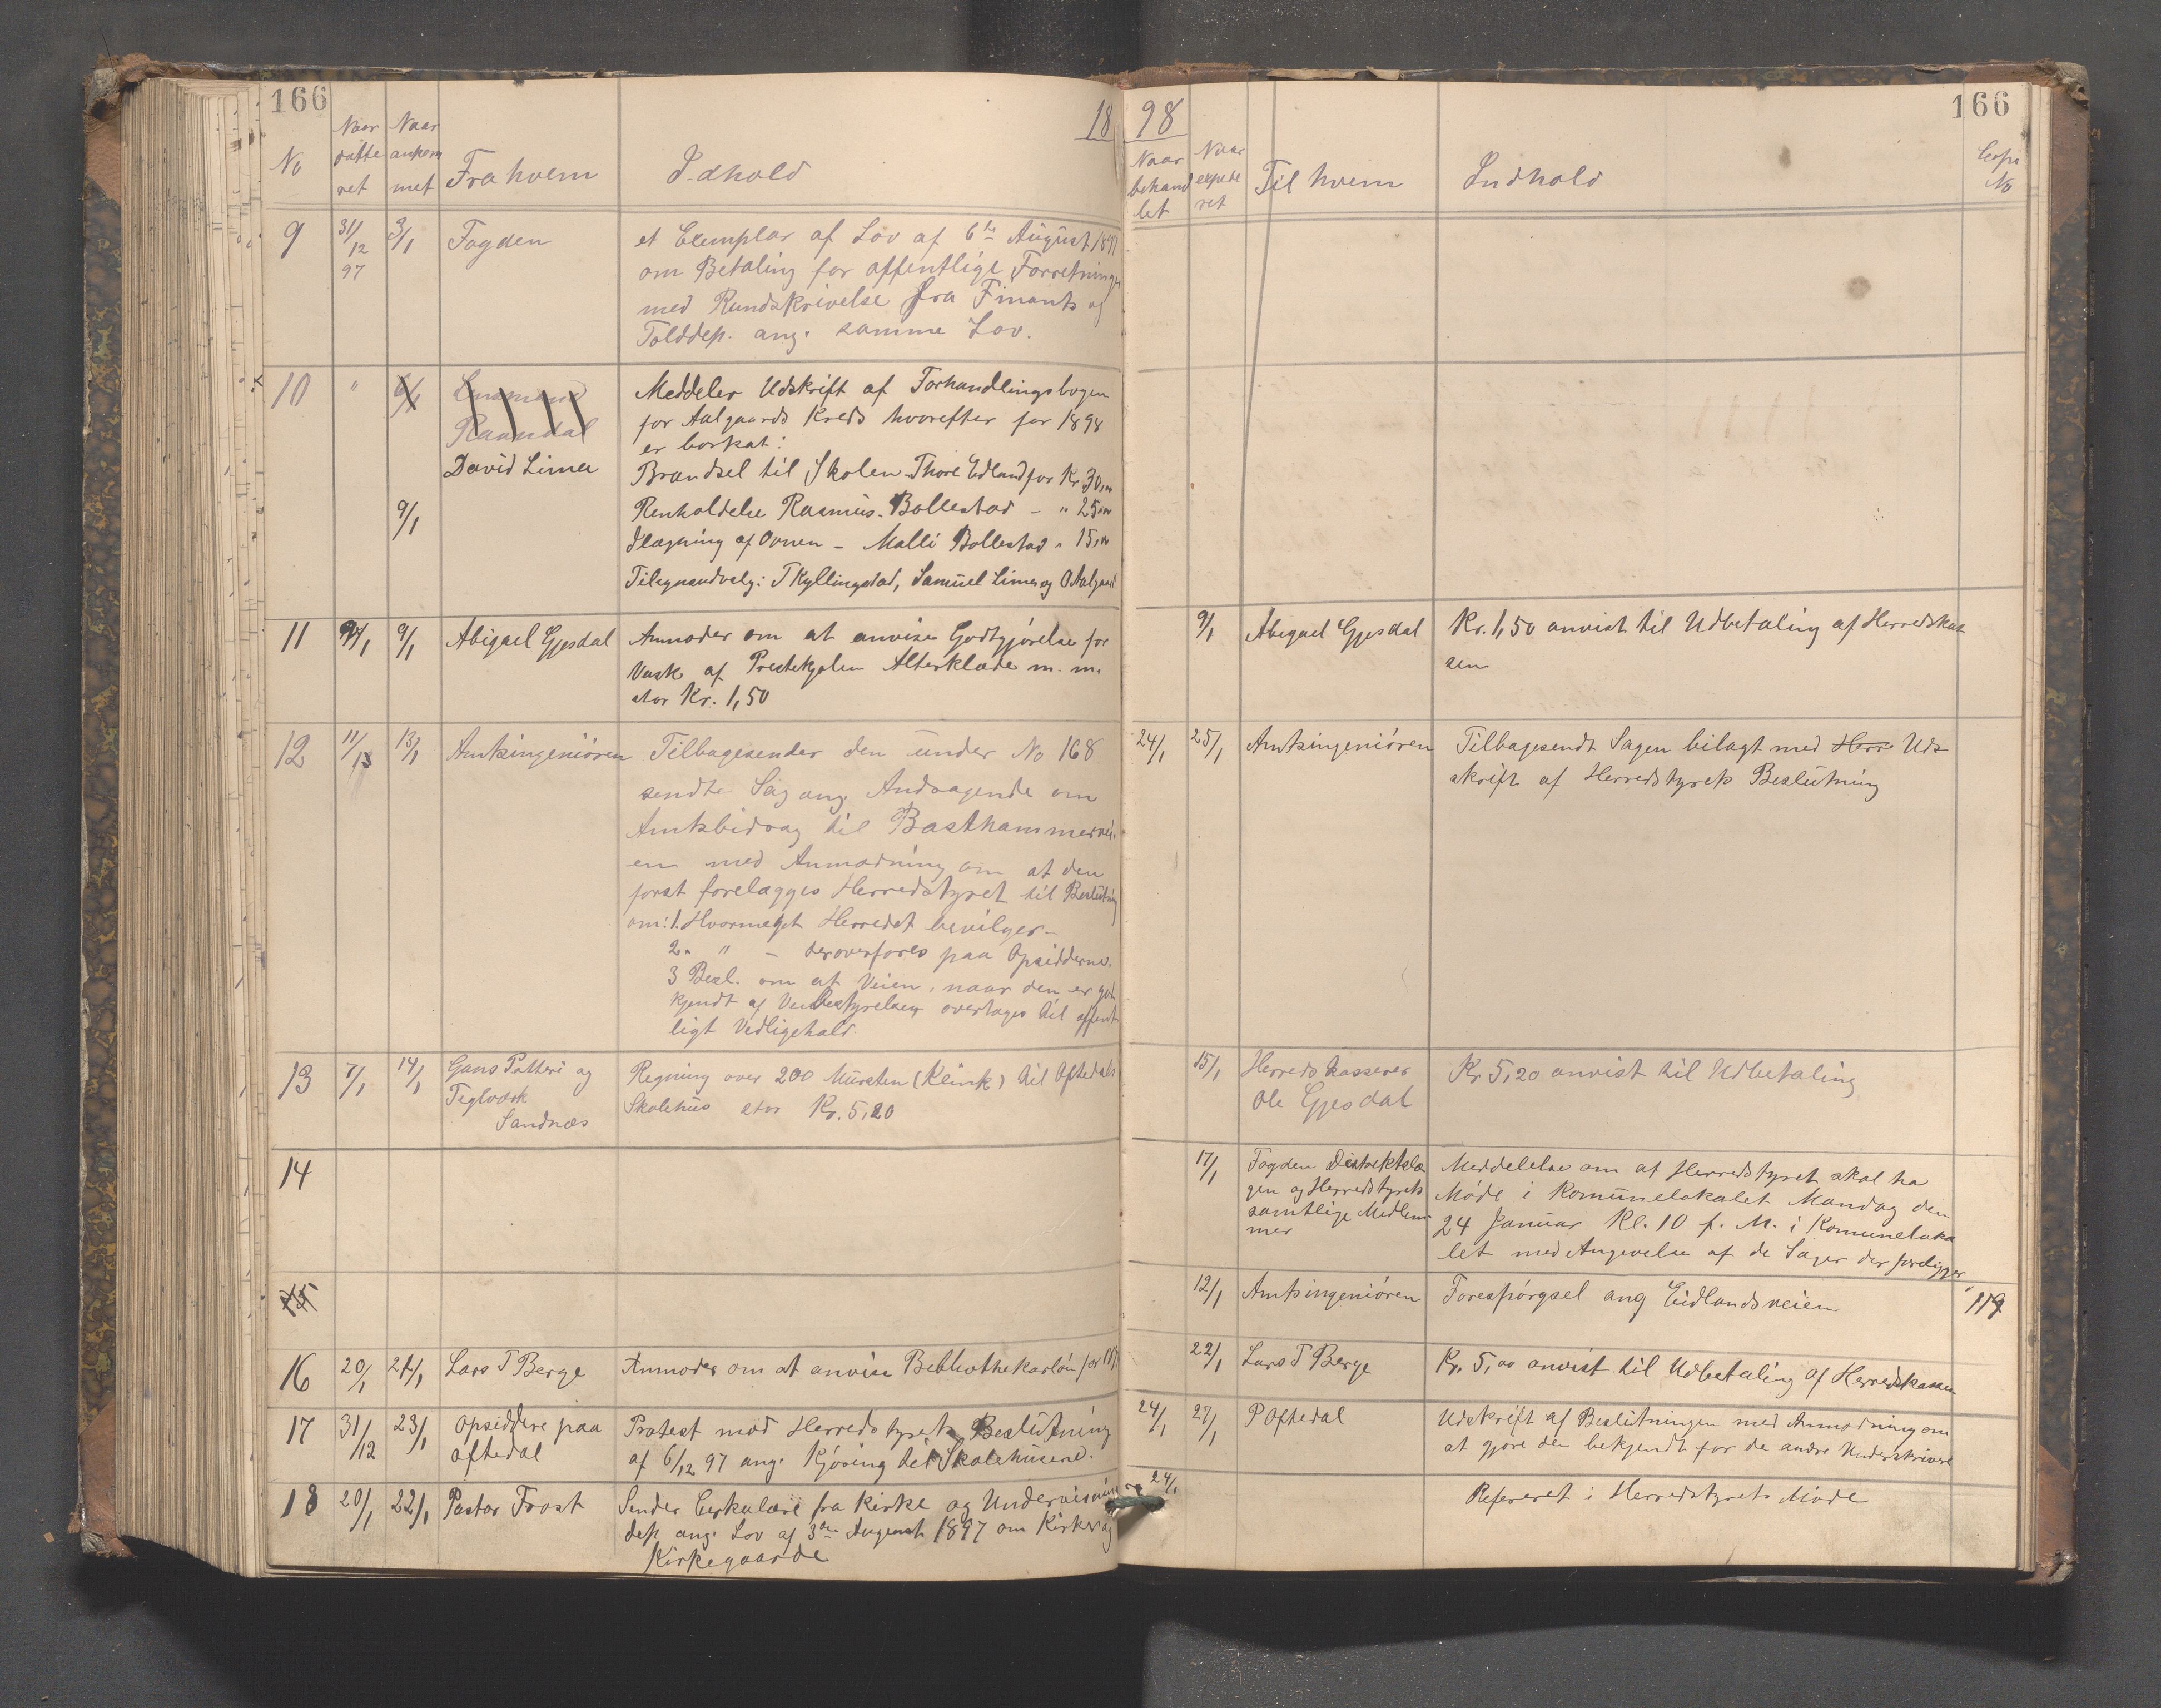 166
18
No
Naar datte ret
Naar ankom met
Fra hvem
Idhold
9
31/12 97
3/1
Fogden
et Exemplar af Lov af 6te August 1897
om Betaling for offentlige Forretninger
med Rundskrivelse fra Finants og
Tolddep. ang. samme Lov.
10
"
6/1
Raandal
David Lima
9/1
Meddeler Udskrift af Forhandlingsbogen
for Aalgaards Kreds hvorefter for 1898
er bortsat:
Brændsel til Skolen Thore Edland for Kr 30,00
Renholdelse Rasmus Bollestad - " 25,00
Ilægning af Ovnen - Malli Bollestad " 15,00
Tilsynsudvalg: T Kyllingstad, Samuel Lima og O Aalgaard
11
9/1
9/1
Abigael Gjesdal
Anmoder om at anvise Godtgjørelse for
Vask af Prestekjolen Alterklæde m. m.
stor Kr. 1,50
12
11/1
13/1
Amtsingeniören
Tilbagesender den under No 168
sendte Sag ang. Andragende om
Amtsbidrag til Basthammervei-
en med Anmodning om at den
forst forelægges Herredstyret til Beslutning
om: 1. Hvormeget Herredet bevilger -
2. " - deroverføres paa Opsidderne.
3 Besl. om at Veien, naar den er god
kjendt af Veibestyrelsen overtages til offent
ligt Vedligehold.
13
7/1
14/1
Gans Potteri og
Teglværk
Sandnæs
Regning over 200 Mursten (Klink) til Oftedals
Skolehus stor Kr. 5,20
14
15
16
20/1
21/1
Lars T Berge
Anmoder om at anvise Bebliothekarløn for 1897
17
31/12
23/1
Opsiddere paa
Oftedal
Protest mod Herredstyrets Beslutning
af 6/12 97 ang. Kjøring til Skolehusene.
18
20/1
22/1
Pastor Frost
Sender Cirkulære fra Kirke og Undervisnings
dep ang. Lov af 3die August 1897 om Kirker og
Kirkegaarde
98
166
Naar behand let
Naar expede ret
Til hvem
Indhold
Copi No
9/1
Abigael Gjesdal
Kr. 1,50 anvist til Udbetaling af Herredskas
sen
24/1
25/1
Amtsingeniören
Tilbagesendt Sagen bilagt med Herr Uds
skrift af Herredstyrets Beslutning
15/1
Herredskasserer
Ole Gjesdal
Kr 5,20 anvist til Udbetaling
17/1
Fogden Distriktslæ
gen og Herredstyrets
samtlige Medlem
mer
Meddelelse om at Herredstyret skal ha
Møde i Komunelokalet Mandag den
24 Januar Kl. 10 f. M. i Komuneloka
let med Angivelse af de Sager der foreligger
12/1
Amtsingeniören
Forespørgsel ang Eidlandsveien
119
22/1
Lars T Berge
Kr. 5,00 anvist til Udbetaling af Herredskassen
24/1
27/1
P Oftedal
Udskrift af Beslutningen med Anmodning om
at gjøre den bekjendt for de andre Underskrivere
24/1
Refereret i Herredstyrets Møde